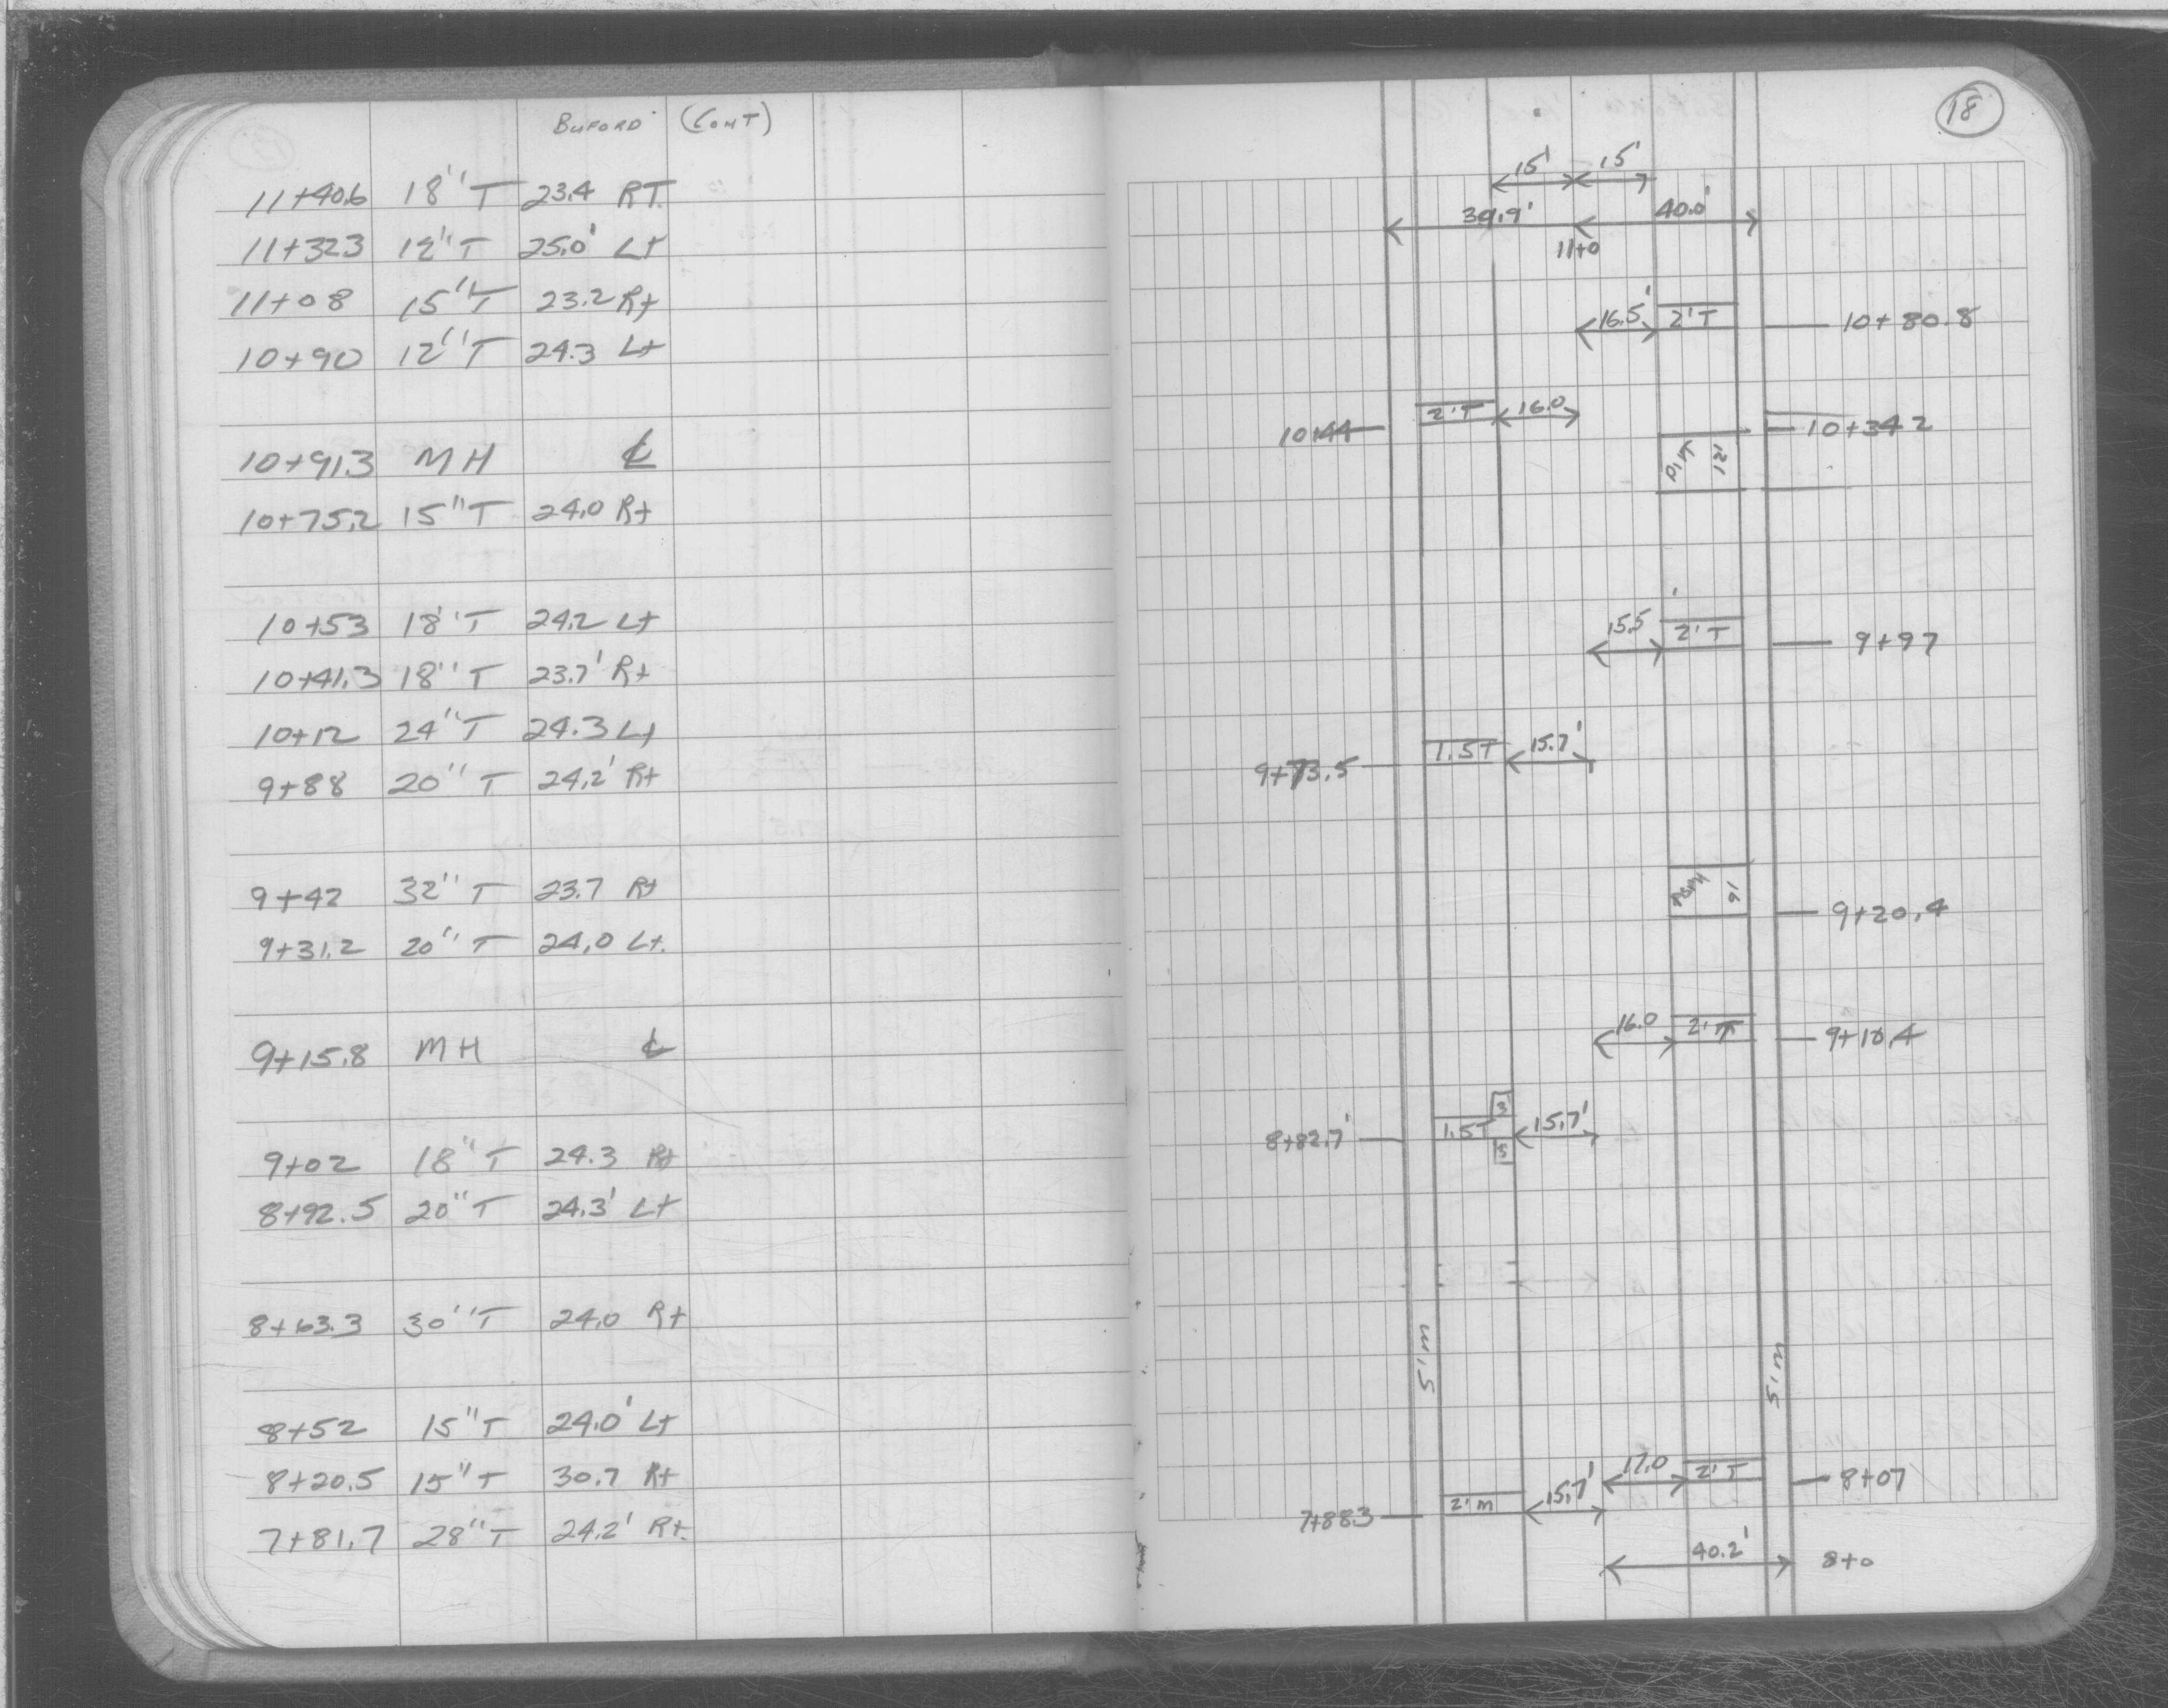 BUFORD (CONT)
11+40.6 18"T 23.4 RT.
11+32.3 12"T 25.0' Lt
11+08 15"T 23.2 Rt
10+90 12"T 24.3 Lt
10+91.3 MH ℄
10+75.2 15"T 24.0 Rt
10+53 18"T 24.2 Lt
10+41.3 18"T 23.7' Rt
10+12 24"T 24.3 Lt
9+88 20"T 24.2' Rt
9+42 32"T 23.7 Rt
9+31.2 20"T 24.0 Lt.
9+15.8 MH ℄
9+02 18"T 24.3 Rt
8+92.5 20"T 24.3' Lt
8+63.3 30"T 24.0 Rt
8+52 15"T 24.0' Lt
8+20.5 15"T 30.7 Rt
7+81.7 28"T 24.2' Rt.
18
15' 15'
39.9' 40.0'
11+0
16.5' 2'T 10+80.8
10+44 2'T 16.0
10+34.2
Dirt 12'
15.5' 2'T 9+97
9+73.5 1.5T 15.7'
16
9+20.4
16.0 2'T
8+82.7' 1.5T 3 15.7'
5
5'm 5'm
17.0 2'T 8+07
7+88.3 2'm 15.7'
40.2' 8+0